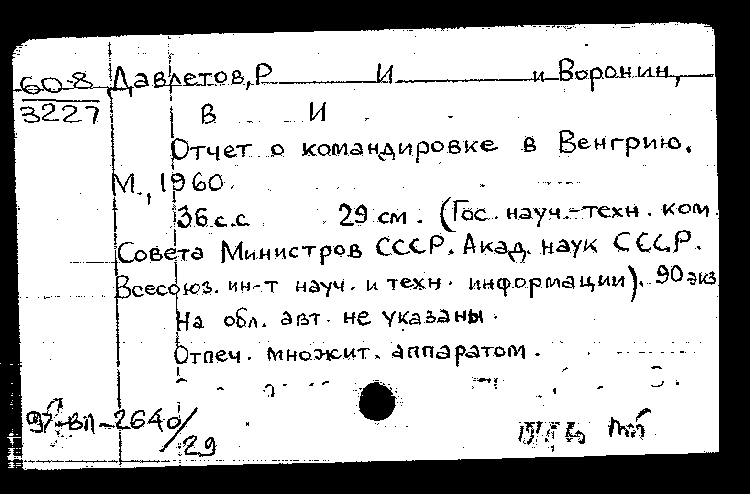 60-8 Давлетов, Р И и Воронин,
3227 В И
Отчет о командировке в Венгрию.
М., 1960.
36 с.с 29 см. (Гос. науч.-техн. ком.
Совета Министров СССР. Акад. наук СССР.
Всесоюз. ин-т науч. и техн. информации). 90 экз
На обл. авт. не указаны.
Отпеч. множит. аппаратом.
97-ВП-2640/
29